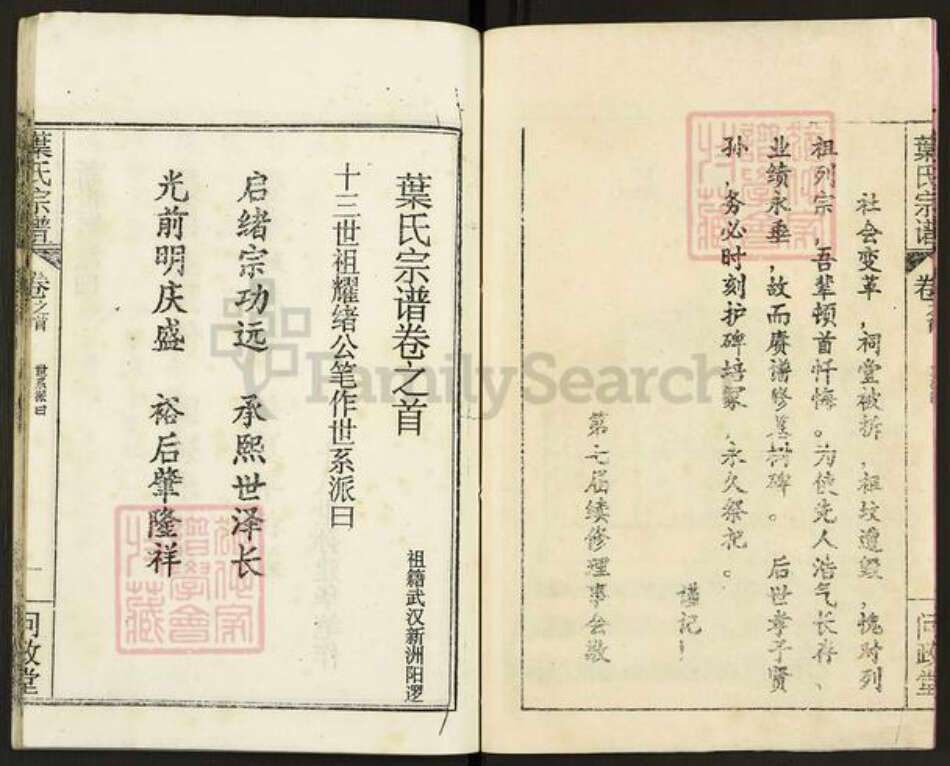 葉氏宗谱
卷
社会变革,祠堂被拆,祖坟遭毁,愧对列
祖列宗,吾辈顿首忏悔。为使先人浩气长存、
业绩永垂,故而赓谱修墓树碑。 后世孝子贤
孙,务必时刻护碑培冢,永久祭祀。
谨记!
第七届续修理事会敬
问政堂
葉氏宗谱卷之首
祖籍武汉新洲阳逻
十三世祖耀绪公笔作世系派曰
启绪宗功远 承熙世泽长
光前明庆盛 裕后肇隆祥
葉氏宗谱
卷之首
世系派曰
一
问政堂
FamilySearch